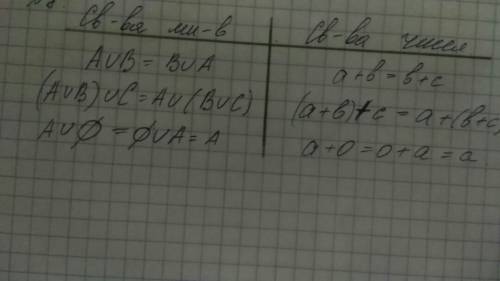 №8.
Св-ва мн-в Св-ва чисел
A∪B = B∪A a+в=в+с
(A∪B)∪C=A∪(B∪C) (a+в)+c = a+(в+c
A∪∅ = ∅∪A = A a+0=0+a=a